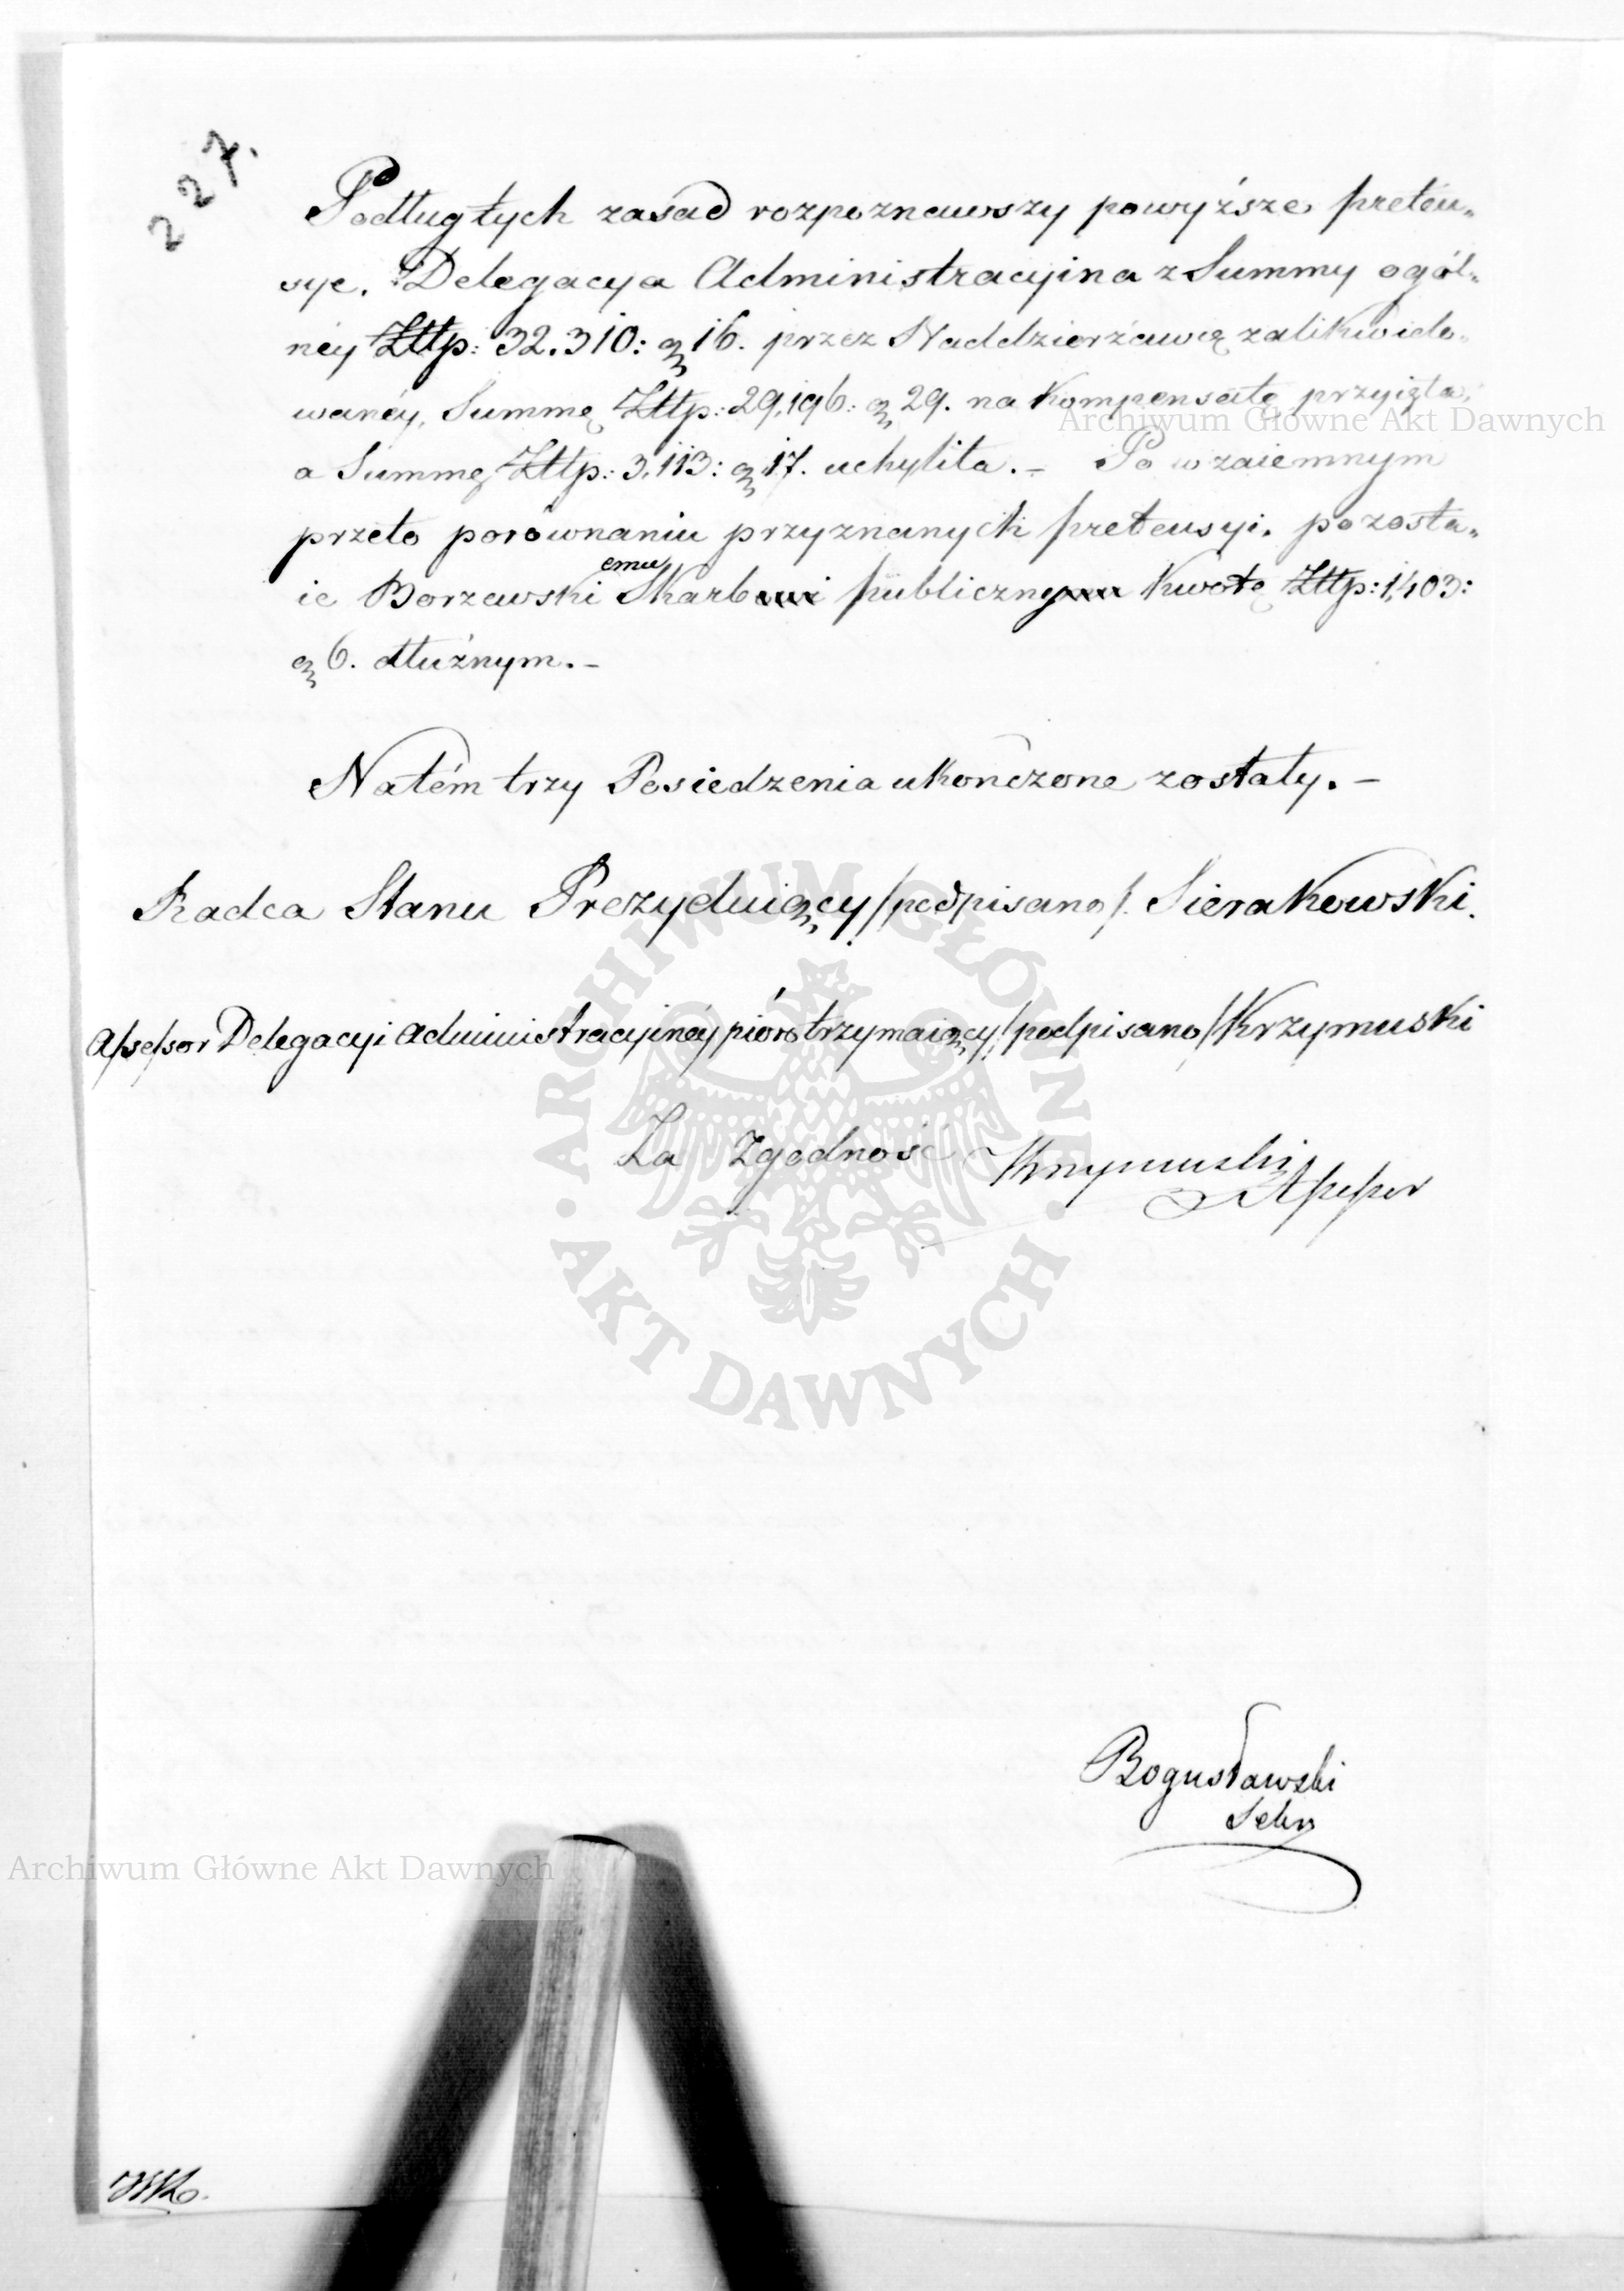 227.
Podług tych zasad rozpoznawszy powyższe preten„
sye. Delegacya Administracyina z Summy ogól„
néy Złtp: 32.310: g 16. przez Naddzierżawcę zalikwido„
wanéy, Summę Złtp: 29,196: g 29. na kompensatę przyięła,
a Summę Złtp: 3,113: g 17. uchyliła. – Po wzaiemnym
przeto porównaniu przyznanych pretensyi, pozosta„
ie Borzewski emu Skarbowi publicznemu kwotę Złtp: 1,403:
g 6. dłużnym. –
Na tém trzy Posiedzenia ukończone zostały. –
Radca Stanu Prezyduiący /podpisano/. Sierakowski.
Assessor Delegacyi Administracyinéy pióro trzymaiący /podpisano/ Krzymuski
Za Zgodność Krzymuski
Assessor
Bogusławski
Sekr
Archiwum Główne Akt Dawnych
Archiwum Główne Akt Dawnych
ARCHIWUM GŁÓWNE
AKT DAWNYCH